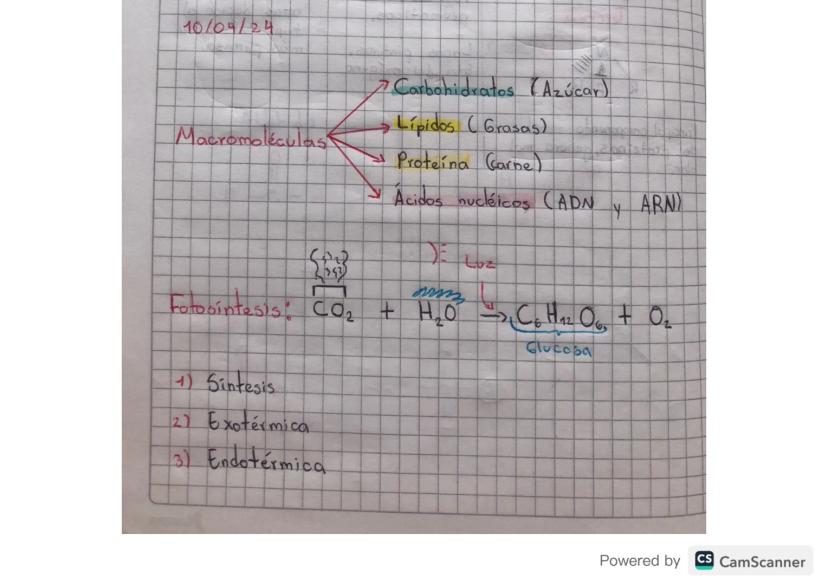 10/04/24
Carbohidratos (Azúcar)
Lípidos (Grasas)
Macromoléculas
Proteína (Carne)
Ácidos nucléicos (ADN y ARN)
Luz
Fotosíntesis: CO₂ + H₂O → C₆H₁₂O₆ + O₂
Glucosa
1) Síntesis
2) Exotérmica
3) Endotérmica
Powered by CS CamScanner